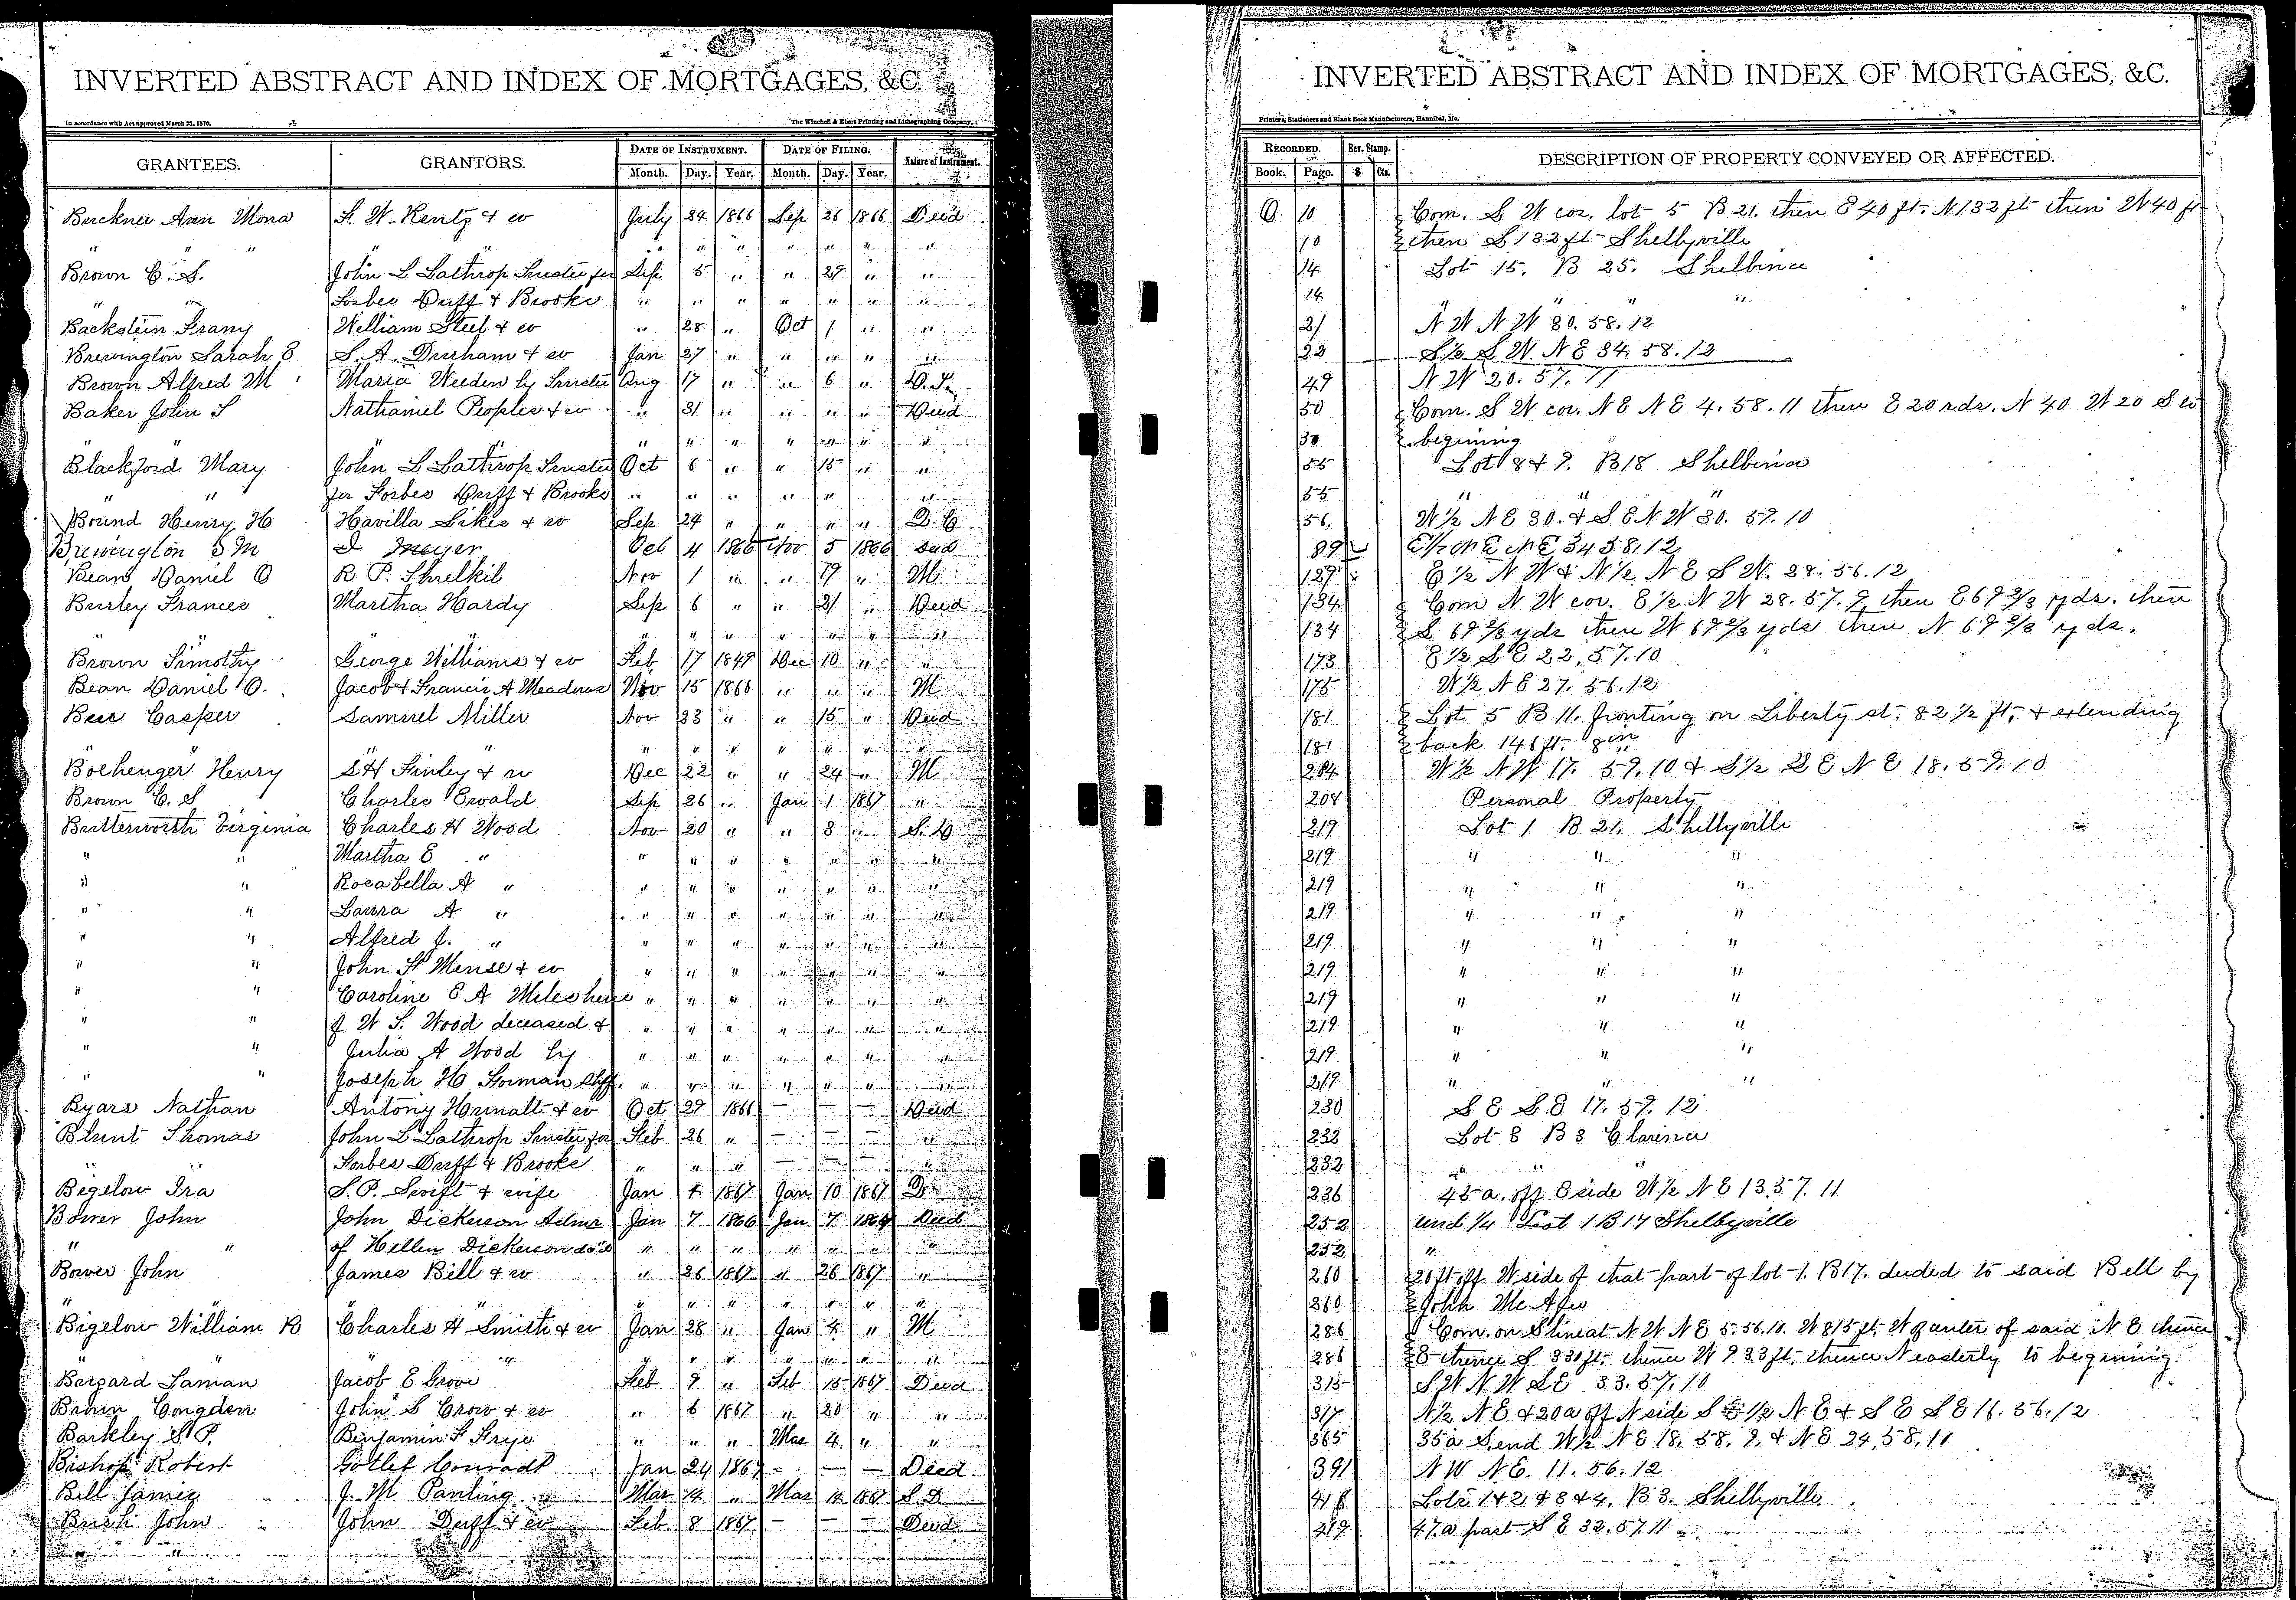 INVERTED ABSTRACT AND INDEX OF MORTGAGES, &C.
In accordance with Act approved March 25, 1870.
The Winchell & Ebert Printing and Lithographing Company,
GRANTEES. GRANTORS. DATE OF INSTRUMENT. DATE OF FILING. Nature of Instrument.
Month. Day. Year. Month. Day. Year.
Buckner Ann Mona S. W. Rentz & w July 24 1866 Sep 26 1866 Deed
" " " " " " " " " " "
Brown C. S. John L Lathrop Trustee for Sep 5 " " 27 " "
" " Forbes Duff & Brooks " " " " " " "
Backstein Frany William Steel & w " 28 " Oct 1 " "
Brewington Sarah E S. A. Durham & w Jan 27 " " " " "
Brown Alfred M Maria Weeden by Trustee Aug 17 " " 6 " D. T.
Baker John S Nathaniel Peoples & w " 31 " " " " Deed
" " " " " " " " "
Blackford Mary John L Lathrop Trustee Oct 6 " " 15 " "
" " for Forbes Duff & Brooks " " " " " "
Bound Henry H Havilla Sikes & w Sep 24 " " " " D. C.
Brewington S M I Meyer Oct 4 1866 Nov 5 1866 Deed
Bean Daniel O R P. Threlkil Nov 1 " " 19 " M
Burley Frances Martha Hardy Sep 6 " " 21 " Deed
" " " " " " "
Brown Timothy George Williams & w Feb 17 1849 Dec 10 " "
Bean Daniel O. Jacob & Francis A Meadows Nov 15 1866 " " " M
Beis Casper Samuel Miller Nov 23 " " 15 " Deed
" " " " " " " " "
Bolhenger Henry S H Finley & w Dec 22 " " 24 " M
Brown C. S Charles Ewald Sep 26 " Jan 1 1867 "
Butterworth Virginia Charles H Wood Nov 20 " " 8 " S. D.
" " Martha E " " " " " " " "
" " Rosabella A " " " " " " " "
" " Laura A " " " " " " " "
" " Alfred J. " " " " " " " "
" " John H Mense & w " " " " " " "
" " Caroline E A Miles heirs " " " " " " "
" " of W S. Wood deceased & " " " " " " "
" " Julia A Wood by " " " " " " "
" " Joseph H Forman Shff. " " " " " " "
Byars Nathan Antony Hunalt & w Oct 29 1866 — — — Deed
Blunt Thomas John L Lathrop Trustee for Feb 26 " — — — "
" Forbes Duff & Brooks " " " — — — "
Bigelow Ira S. P. Swift & wife Jan 4 1867 Jan 10 1867 D
Bower John John Dickerson Admr Jan 7 1866 Jan 7 Deed
" " of Hellen Dickerson dec'd " " " " " " "
Bower John James Bell & w " 26 1867 " 26 1867 "
" " " " " " " " "
Bigelow William B Charles H Smith & w Jan 28 " Jan 4 " M
" " " " " " " "
Laman Jacob E Grove Feb 9 " Feb 15 1867 Deed
Brown Congden John S Crow & w " 6 1867 " 20 " "
Barkley S P. Benjamin F Frye " " " Mar 4 " "
Bishop Robert Gotleb Conradt Jan 24 1867 — — — Deed
Bell James J. M. Panting Mar 14 " Mar 14 1867 S. D
Bush John John Duff & w Feb 8 1867 — — — Deed
INVERTED ABSTRACT AND INDEX OF MORTGAGES, &C.
Printers, Stationers and Blank Book Manufacturers, Hannibal, Mo.
RECORDED. Rev. Stamp. DESCRIPTION OF PROPERTY CONVEYED OR AFFECTED.
Book. Page. $ Cts.
Q 10 Com. S W cor. lot 5 B 21. then E 40 ft. N 132 ft then W 40 ft
10 then S 132 ft Shelbyville
14 Lot 15. B 25. Shelbina
14 " " "
21 N W N W 30. 58. 12
22 S ½ S W. N E 34. 58. 12
49 N W 20. 57. 11
50 Com. S W cor. N E N E 4. 58. 11 then E 20 rds. N 40 W 20 S to
50 begining
55 Lot 8 & 9. B 18 Shelbina
55 " " "
56. W ½ N E 30. & S E N W 30. 59. 10
89 E ½ N E N E 34 58. 12
129 E ½ N W & N ½ N E S W. 28. 56. 12
134 Com N W cor. E ½ N W 28. 57. 9 then E 69 ⅔ yds. then
134 S. 69 ⅔ yds then W 69 ⅔ yds then N 69 ⅔ yds.
173 E ½ S E 22, 57. 10
175 W ½ N E 27. 56. 12
181 Lot 5 B 11. fronting on Liberty st. 82 ½ ft, & extending
181 back 146 ft. 8 in
204 W ½ N W 17. 59. 10 & S ½ S E N E 18. 59. 10
208 Personal Property
219 Lot 1 B 21. Shelbyville
219 " " "
219 " " "
219 " " "
219 " " "
219 " " "
219 " " "
219 " " "
219 " " "
219 " " "
230 S E S E 17. 59. 12
232 Lot 8 B 3 Clarence
232 " "
236 45 a. off E side W ½ N E 13. 57. 11
252 und ¼ Lot 1 B 17 Shelbyville
252 "
260 20 ft off W side of that part of lot 1. B 17. deeded to said Bell by
260 John Mc Afee
286 Com. on S line at N W N E 5. 56. 10. W 815 ft. W of center of said N E thence
286 E thence S 330 ft. thence W 933 ft. thence N easterly to begining.
315 S W N W S E 33. 57. 10
317 N ½ N E & 20 a off N side S E ½ N E & S E S E 16. 56. 12
365 35 a S. end W ½ N E 18. 58. 9. & N E 24, 58, 11
391 N W N E. 11. 56. 12
418 Lots 1 & 2 & 3 & 4. B 3. Shelbyville
419 47 a part S E 32. 57. 11